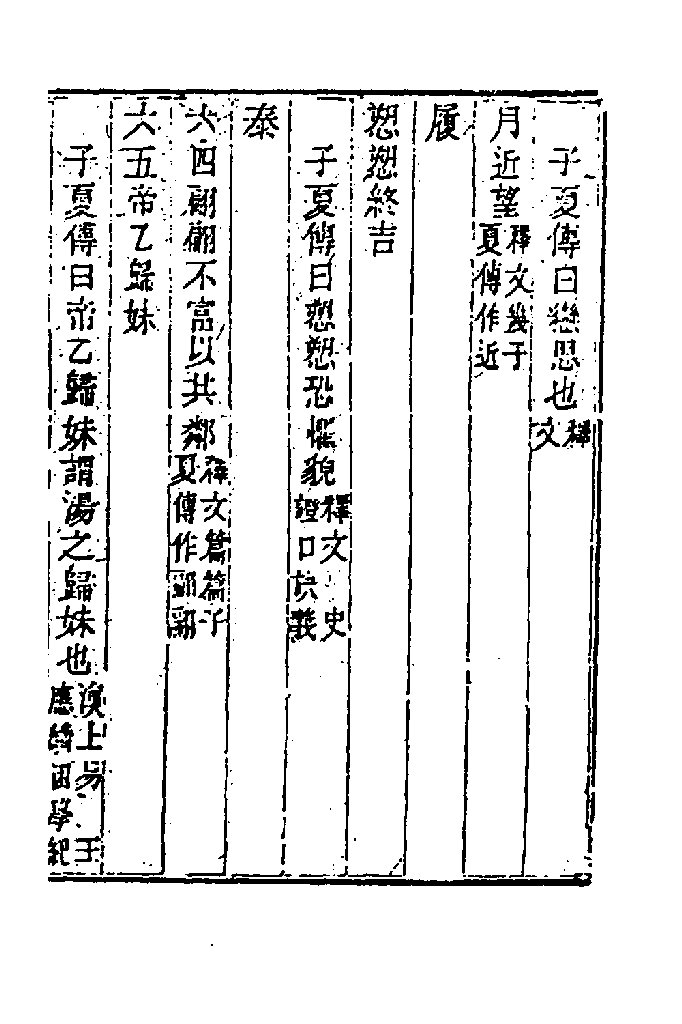 子夏傳曰戀思也釋文
月近望釋文幾子夏傳作近
履
愬愬終吉
子夏傳曰愬愬恐懼貌釋文 史證口訣義
泰
六四翩翩不富以其鄰釋文篇篇子夏傳作翩翩
六五帝乙歸妹
子夏傳曰帝乙歸妹謂湯之歸妹也漢上易 王應麟困學紀